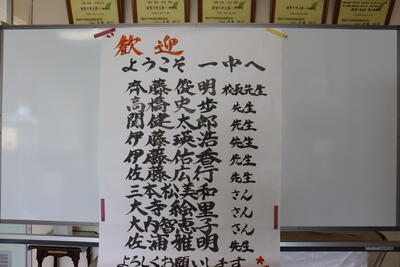 歓迎
ようこそ 一中へ
齊藤 俊明 校長先生
高橋 史歩 先生
関 健太郎 先生
伊藤 瑛浩 先生
伊藤 佑香 先生
佐藤 広行 先生
三本松 美和 さん
大寺 絵里 さん
大内 さん
佐浦 雅明 先生
よろしくお願いします